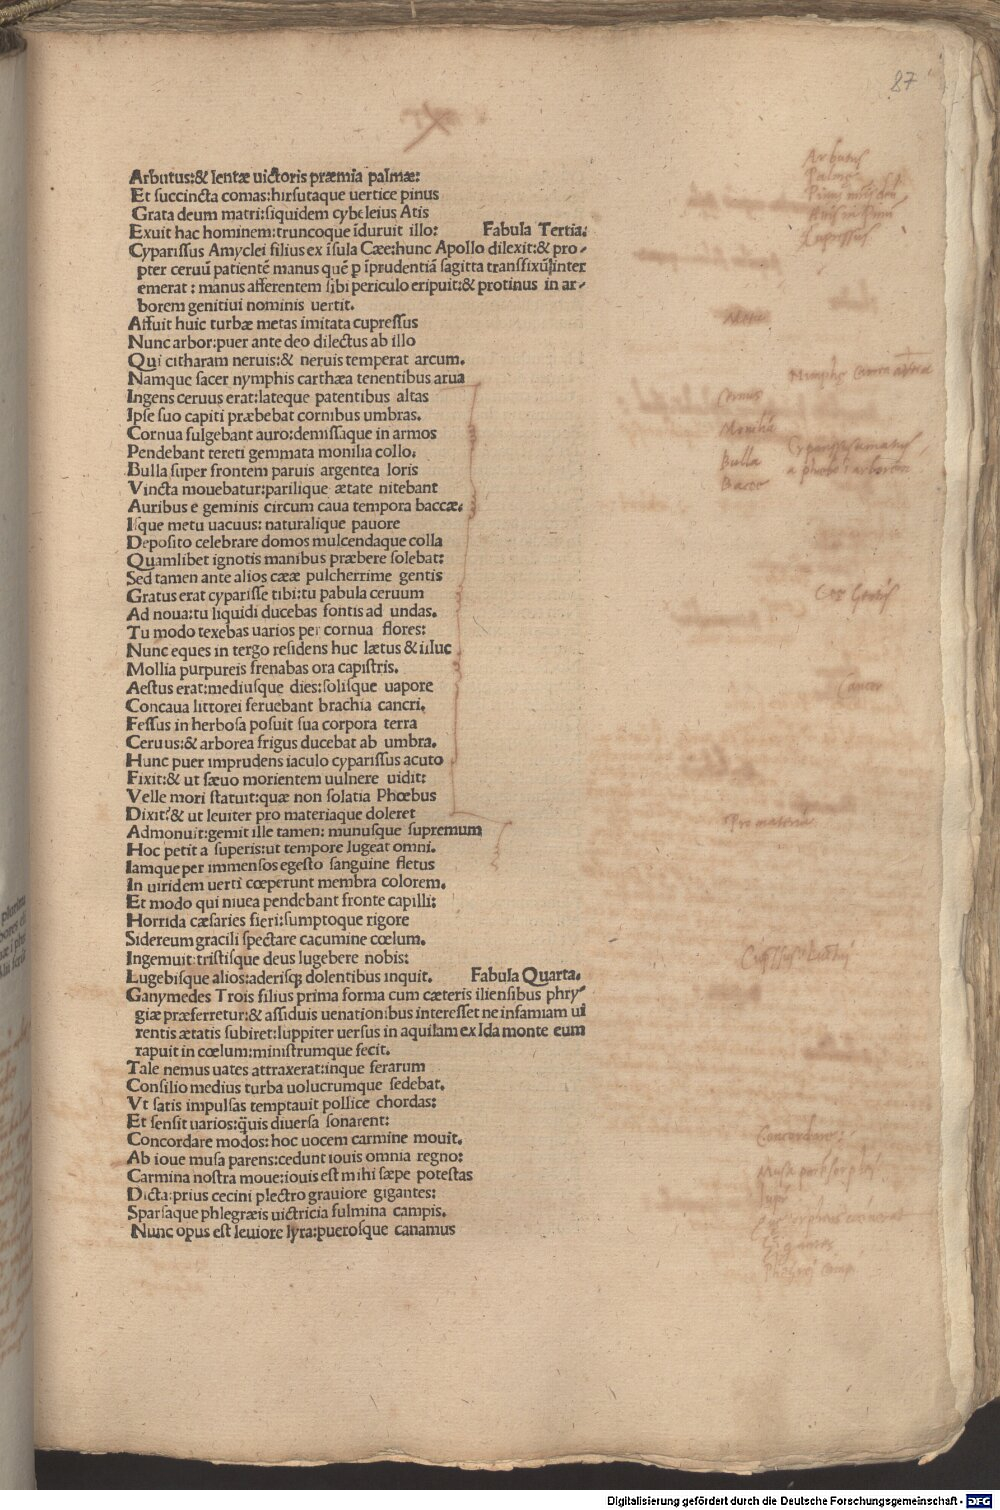 87
Arbutus:& lentæ uictoris præmia palmæ:
Et succincta comas:hirsutaque uertice pinus
Grata deum matri:siquidem cybeleius Atis
Exuit hac hominem:truncoque īduruit illo: Fabula Tertia.
Cyparissus Amyclei filius ex īsula Cææ:hunc Apollo dilexit:& pro-
pter ceruū patientē manus quē p īprudentiā sagitta transfixū inter
emerat: manus afferentem sibi periculo eripuit:& protinus in ar-
borem genitiui nominis uertit.
Affuit huic turbæ metas imitata cupressus
Nunc arbor:puer ante deo dilectus ab illo
Qui citharam neruis:& neruis temperat arcum.
Namque sacer nymphis carthæa tenentibus arua
Ingens ceruus erat:lateque patentibus altas
Ipse suo capiti præbebat cornibus umbras.
Cornua fulgebant auro:demissaque in armos
Pendebant tereti gemmata monilia collo.
Bulla super frontem paruis argentea loris
Vincta mouebatur:parilique ætate nitebant
Auribus e geminis circum caua tempora baccæ.
Isque metu uacuus: naturalique pauore
Deposito celebrare domos mulcendaque colla
Quamlibet ignotis manibus præbere solebat:
Sed tamen ante alios cææ pulcherrime gentis
Gratus erat cyparisse tibi:tu pabula ceruum
Ad noua:tu liquidi ducebas fontis ad undas.
Tu modo texebas uarios per cornua flores:
Nunc eques in tergo residens huc lætus & illuc
Mollia purpureis frenabas ora capistris.
Aestus erat:mediusque dies:solisque uapore
Concaua littorei feruebant brachia cancri.
Fessus in herbosa posuit sua corpora terra
Ceruus:& arborea frigus ducebat ab umbra.
Hunc puer imprudens iaculo cyparissus acuto
Fixit:& ut sæuo morientem uulnere uidit:
Velle mori statuit:quæ non solatia Phœbus
Dixit?& ut leuiter pro materiaque doleret
Admonuit:gemit ille tamen: munusque supremum
Hoc petit a superis:ut tempore lugeat omni.
Iamque per immensos egesto sanguine fletus
In uiridem uerti cœperunt membra colorem.
Et modo qui niuea pendebant fronte capilli:
Horrida cæsaries fieri:sumptoque rigore
Sidereum gracili spectare cacumine cœlum.
Ingemuit:tristisque deus lugebere nobis:
Lugebisque alios:aderisq; dolentibus inquit. Fabula Quarta.
Ganymedes Trois filius prima forma cum cæteris iliensibus phry-
giæ præferretur:& assiduis uenationibus interesset ne infamiam ui
rentis ætatis subiret:Iuppiter uersus in aquilam ex Ida monte eum
rapuit in cœlum:ministrumque fecit.
Tale nemus uates attraxerat:inque ferarum
Consilio medius turba uolucrumque sedebat.
Vt satis impulsas temptauit pollice chordas:
Et sensit uarios:q̄uis diuersa sonarent:
Concordare modos: hoc uocem carmine mouit.
Ab ioue musa parens:cedunt iouis omnia regno:
Carmina nostra moue:iouis est mihi sæpe potestas
Dicta:prius cecini plectro grauiore gigantes:
Sparsaque phlegræis uictricia fulmina campis.
Nunc opus est leuiore lyra:puerosque canamus
Arbutus
Palma
Cupressus
Metae
Cornus
Monilia
Bulla
Bacce
Cancer
Pro materia
Concordare
Gigantes
Digitalisierung gefördert durch die Deutsche Forschungsgemeinschaft - DFG